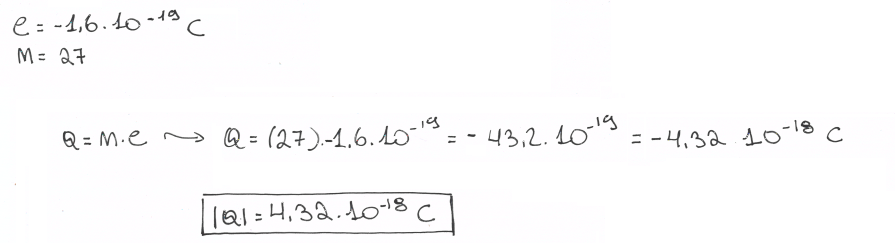 e = -1,6.10⁻¹⁹ C
M = 27
Q = M.e ⇝ Q = (27).-1,6.10⁻¹⁹ = - 43,2.10⁻¹⁹ = -4,32 10⁻¹⁸ C
|Q| = 4,32.10⁻¹⁸ C